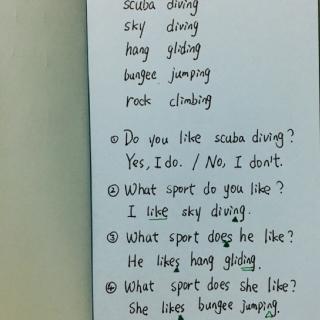 scuba diving
sky diving
hang gliding
bungee jumping
rock climbing
① Do you like scuba diving?
Yes, I do. / No, I don't.
② What sport do you like?
I like sky diving.
③ What sport does he like?
He likes hang gliding.
④ What sport does she like?
She likes bungee jumping.